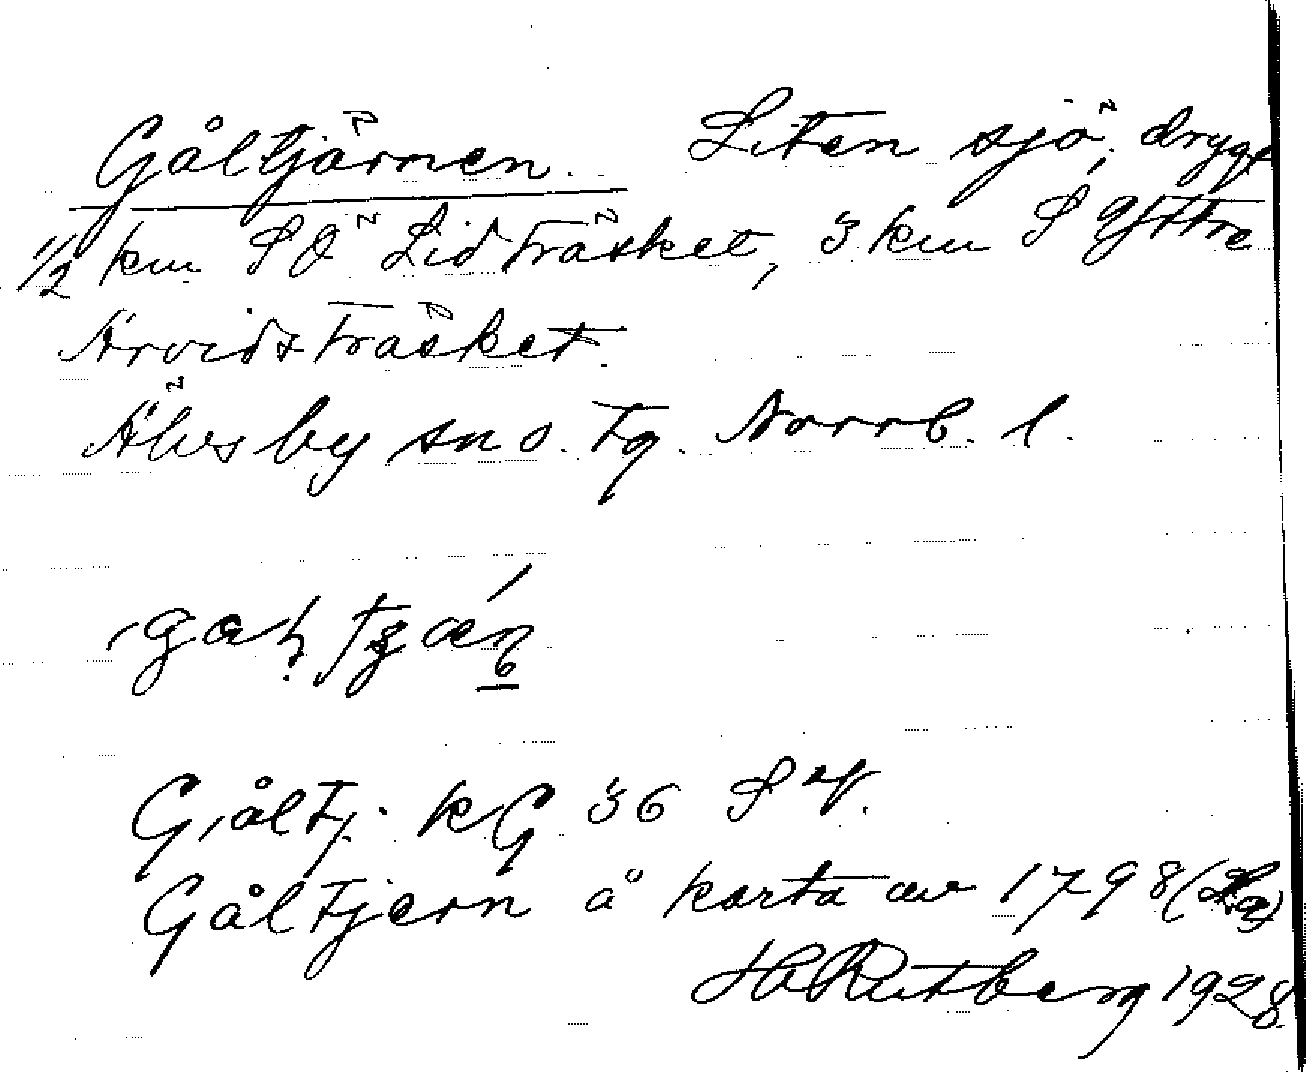 Gåltjärnen. Liten sjö, drygt
1/2 km SO Lidträsket, 3 km S Yttre
Arvidsträsket.
Älvsby sn o. tg. Norrb. l.
Gåltj. KG 36 SV.
Gåltjern å karta av 1798
H Rutberg 1928